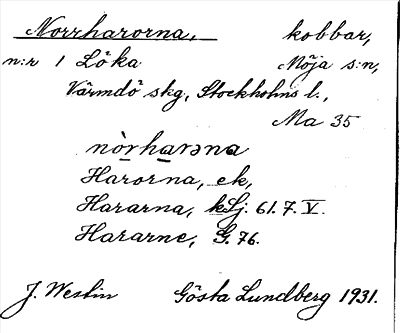 Norrhararna, kobbar,
n:r 1 Löka Möja s:n,
Värmdö skg, Stockholms l.,
Ma 35
nòrharəna
Harorna, ek,
Hararna, kLj. 61. 7. V.
Hararne, G. 76.
J. Westin Gösta Lundberg 1931.